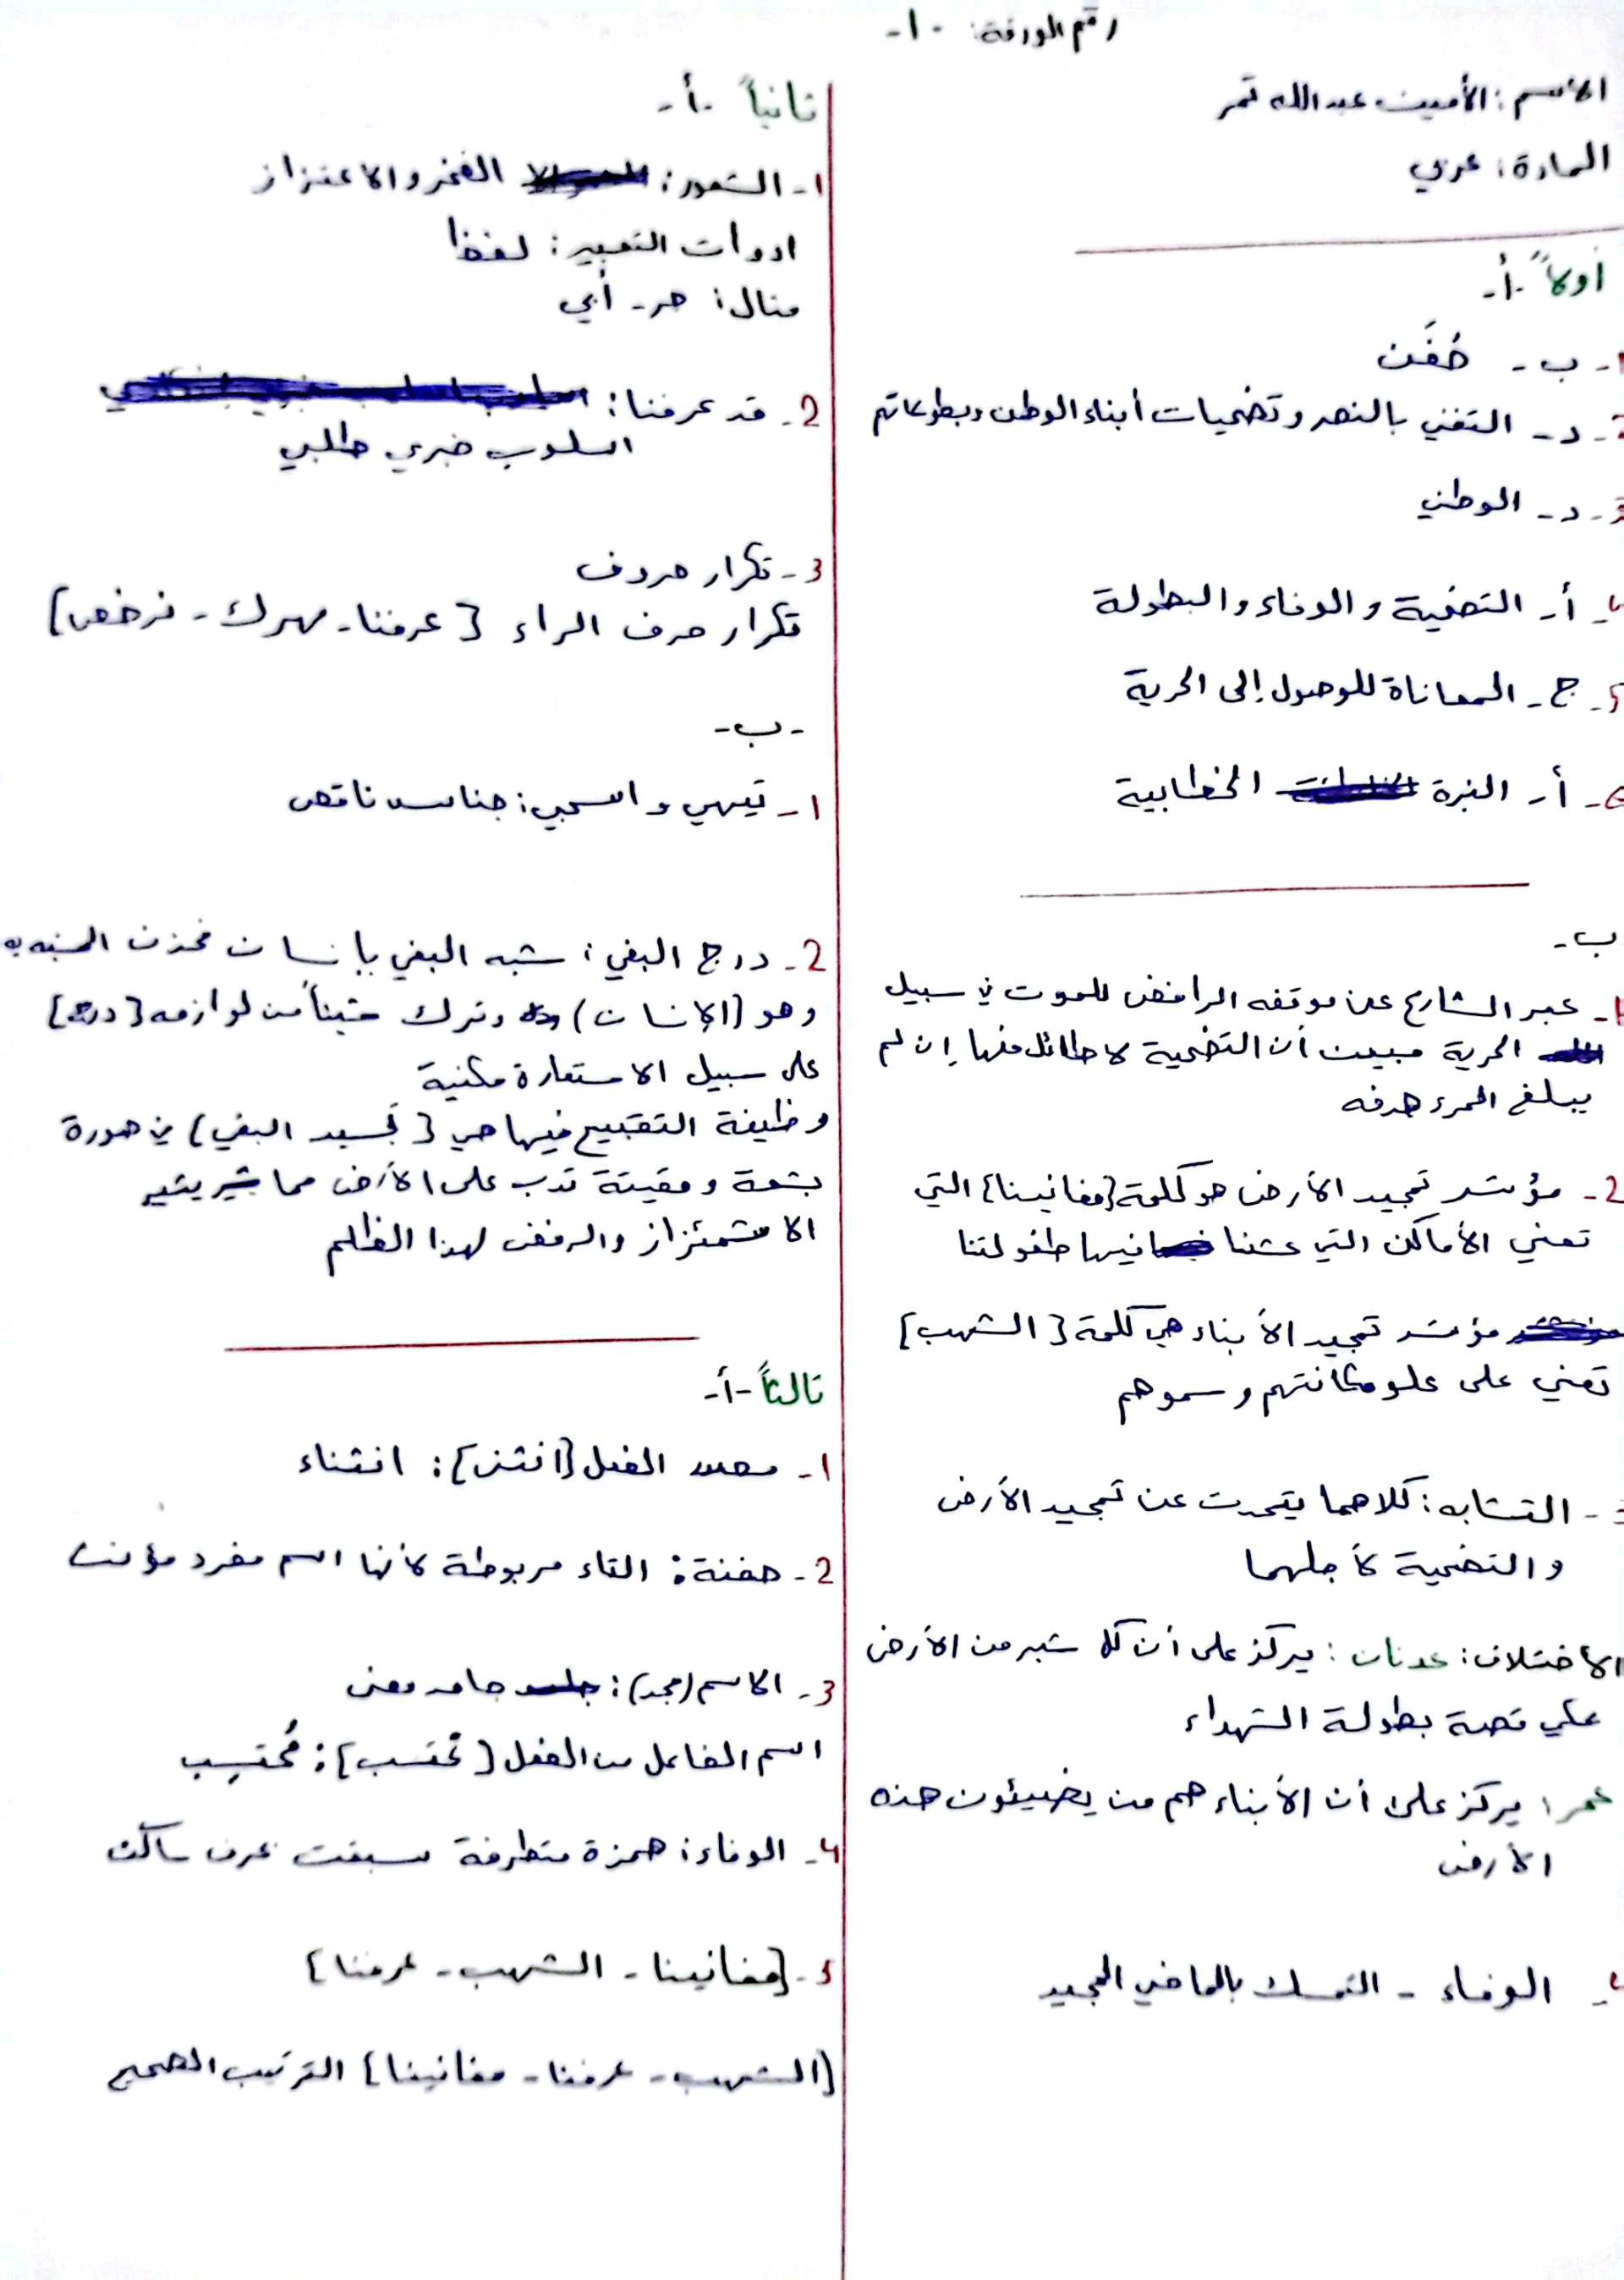 رقم الورقة: -1-
الاسم: الأمين عبد الله تمر
المادة: عربي
أولاً -أ-
1- ب - حُفَن
2- د - التغني بالنصر وتضحيات أبناء الوطن وبطولاتهم
3- د - الوطني
4- أ - التضحية والوفاء والبطولة
5- ج - المعاناة للوصول إلى الحرية
6- أ - النبرة الخطابية
ب-
1- عبر الشارع عن موقفه الرافض للموت في سبيل
الحرية مبين أن التضحية لا طائل منها إن لم
يبلغ المرء هدفه
2- مؤشر تمجيد الأرض هو كلمة [مغانينا] التي
تعني الأماكن التي عشنا فيها طفولتنا
مؤشر تمجيد الأبناء هي كلمة [الشهب]
تعني على علو مكانتهم وسموهم
3- التشابه: كلاهما يتحدث عن تمجيد الأرض
والتضحية لأجلهما
الاختلاف: عدنان: يركز على أن كل شبر من الأرض
على قصة بطولة الشهداء
عمر: يركز على أن الأبناء هم من يضيئون هذه
الأرض
4- الوفاء - التمسك بالماضي المجيد
ثانياً -أ-
1- الشعور: الفخر والاعتزاز
ادوات التعبير: لفظ
مثال: حر - أبي
2- قد عرفنا:
اسلوب خبري طلبي
3- تكرار حروف
تكرار حرف الراء [عرفنا - مهرك - نرخص]
-ب-
1- تيهي واسحبي: جناس ناقص
2- درج البغي: شبه البغي بإنسان فحذف المشبه به
وهو (الإنسان) وترك شيئاً من لوازمه [درج]
على سبيل الاستعارة مكنية
وظيفة التقبيح فيها هي [تجسيد البغي] في صورة
بشعة ومقيتة تدب على الأرض مما يثير
الاشمئزاز والرفض لهذا الظلم
ثالثاً -أ-
1- مصدر الفعل [انثنى]: انثناء
2- حفنة: التاء مربوطة لأنها اسم مفرد مؤنث
3- الاسم (مجد): جامد معنى
اسم الفاعل من الفعل [تحتسب]: مُحتسِب
4- الوفاء: همزة متطرفة سبقت بحرف ساكن
5- [مغانينا - الشهب - عرفنا]
[الشهب - عرفنا - مغانينا] الترتيب الصحيح